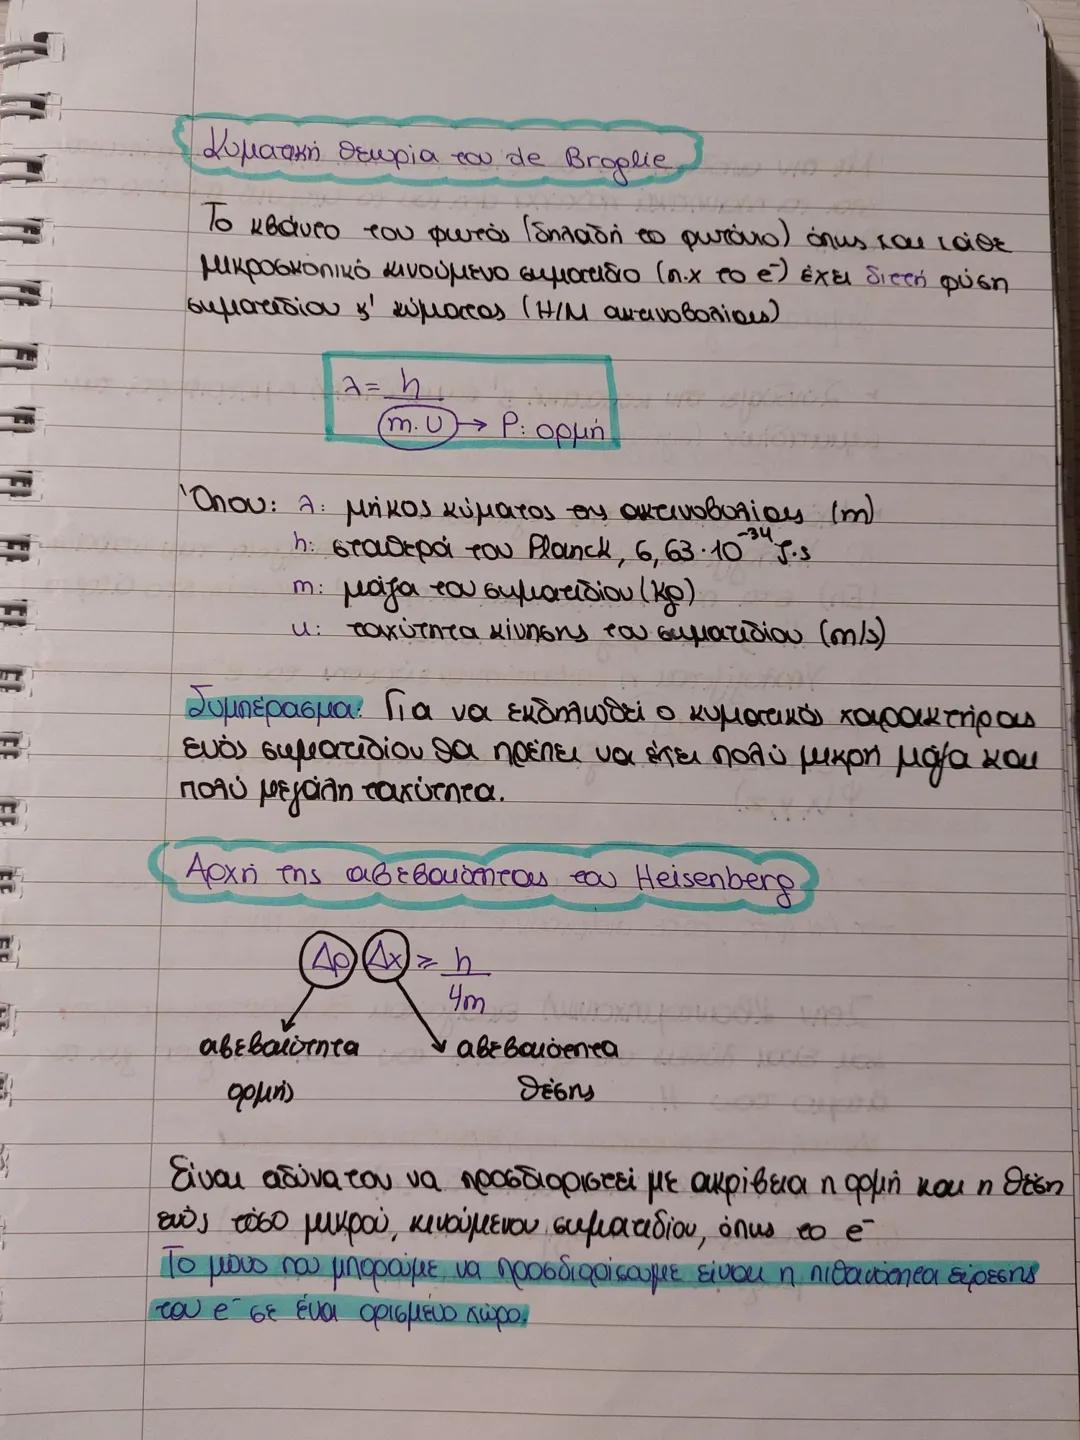 Κυματική θεωρία του de Broglie
Το κβάντο του φωτός (δηλαδή το φωτόνιο) όπως και κάθε
μικροσκοπικό κινούμενο σωματίδιο (π.χ το e⁻) έχει διττή φύση
σωματιδίου κ' κύματος (Η/Μ ακτινοβολίας)
λ = h
m.U → P: ορμή
Όπου: λ: μήκος κύματος της ακτινοβολίας (m)
h: σταθερά του Planck, 6,63·10⁻³⁴ J.s
m: μάζα του σωματιδίου (kg)
u: ταχύτητα κίνησης του σωματιδίου (m/s)
Συμπέρασμα: Για να εκδηλωθεί ο κυματικός χαρακτήρας
ενός σωματιδίου θα πρέπει να έχει πολύ μικρή μάζα και
πολύ μεγάλη ταχύτητα.
Αρχή της αβεβαιότητας του Heisenberg
Δρ Δx ≥ h
4m
αβεβαιότητα αβεβαιότητα
ορμής θέσης
Είναι αδύνατον να προσδιοριστεί με ακρίβεια η ορμή και η θέση
ενός τόσο μικρού, κινούμενου σωματιδίου, όπως το e⁻
Το μόνο που μπορούμε να προσδιορίσουμε είναι η πιθανότητα εύρεσης
του e⁻ σε ένα ορισμένο χώρο.